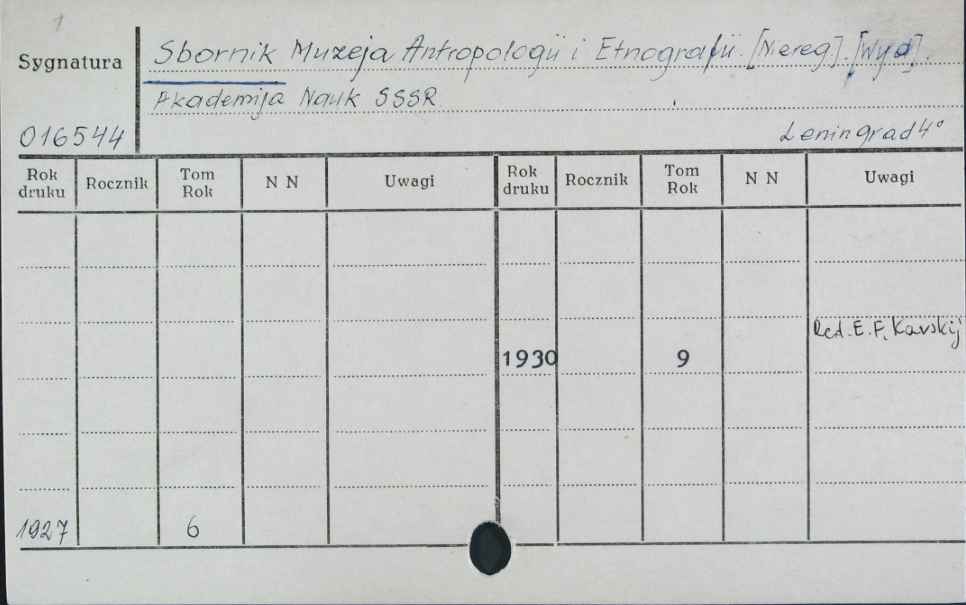 1
Sygnatura
Sbornik Muzeja Antropologii i Etnografii. [Nereg]. [Wyd].
Akademija Nauk SSSR
016544
Leningrad 4°
Rok druku Rocznik Tom Rok N N Uwagi Rok druku Rocznik Tom Rok N N Uwagi
Red. E. F. Karskij
1930 9
1927 6